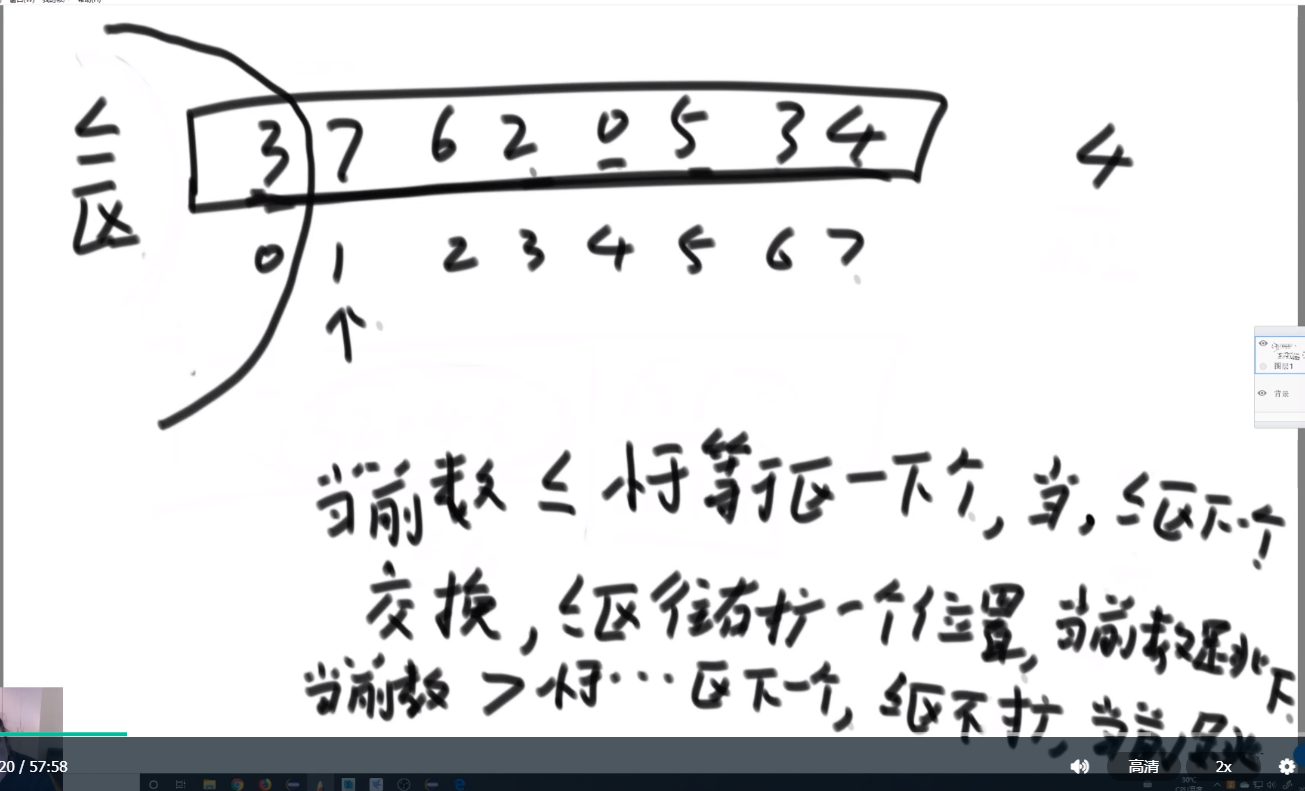 ≤ 区
3 7 6 2 0 5 3 4
4
0 1 2 3 4 5 6 7
↑
当前数 ≤ 小于等于区一下个, 当, ≤区下一个
交换, ≤区往右扩一个位置, 当前数跳下
当前数 > 小于…区下一个, ≤区不扩, 当前跳
图层1
背景
20 / 57:58
高清
2x
30℃